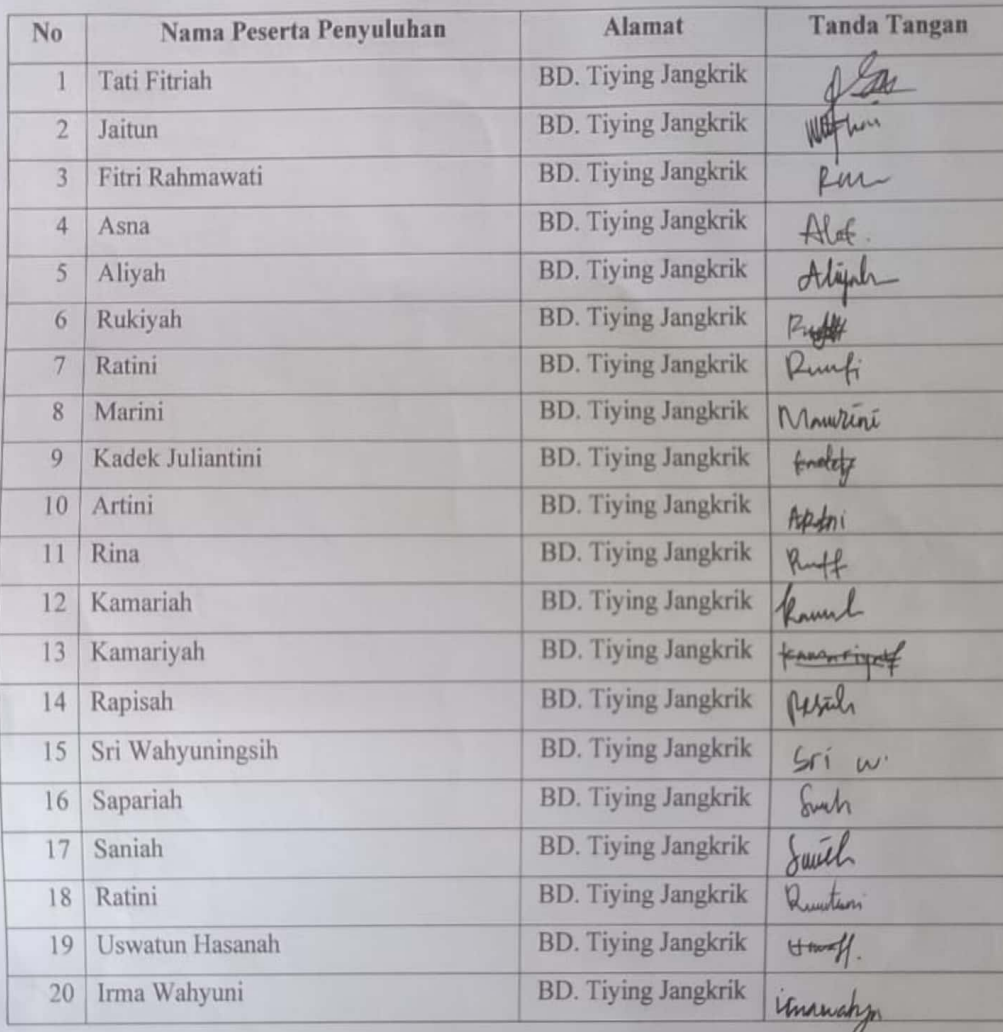 No Nama Peserta Penyuluhan Alamat Tanda Tangan
1 Tati Fitriah BD. Tiying Jangkrik
2 Jaitun BD. Tiying Jangkrik
3 Fitri Rahmawati BD. Tiying Jangkrik
4 Asna BD. Tiying Jangkrik
5 Aliyah BD. Tiying Jangkrik Aliyah
6 Rukiyah BD. Tiying Jangkrik
7 Ratini BD. Tiying Jangkrik
8 Marini BD. Tiying Jangkrik
9 Kadek Juliantini BD. Tiying Jangkrik
10 Artini BD. Tiying Jangkrik
11 Rina BD. Tiying Jangkrik
12 Kamariah BD. Tiying Jangkrik
13 Kamariyah BD. Tiying Jangkrik
14 Rapisah BD. Tiying Jangkrik
15 Sri Wahyuningsih BD. Tiying Jangkrik Sri W.
16 Sapariah BD. Tiying Jangkrik
17 Saniah BD. Tiying Jangkrik
18 Ratini BD. Tiying Jangkrik
19 Uswatun Hasanah BD. Tiying Jangkrik
20 Irma Wahyuni BD. Tiying Jangkrik